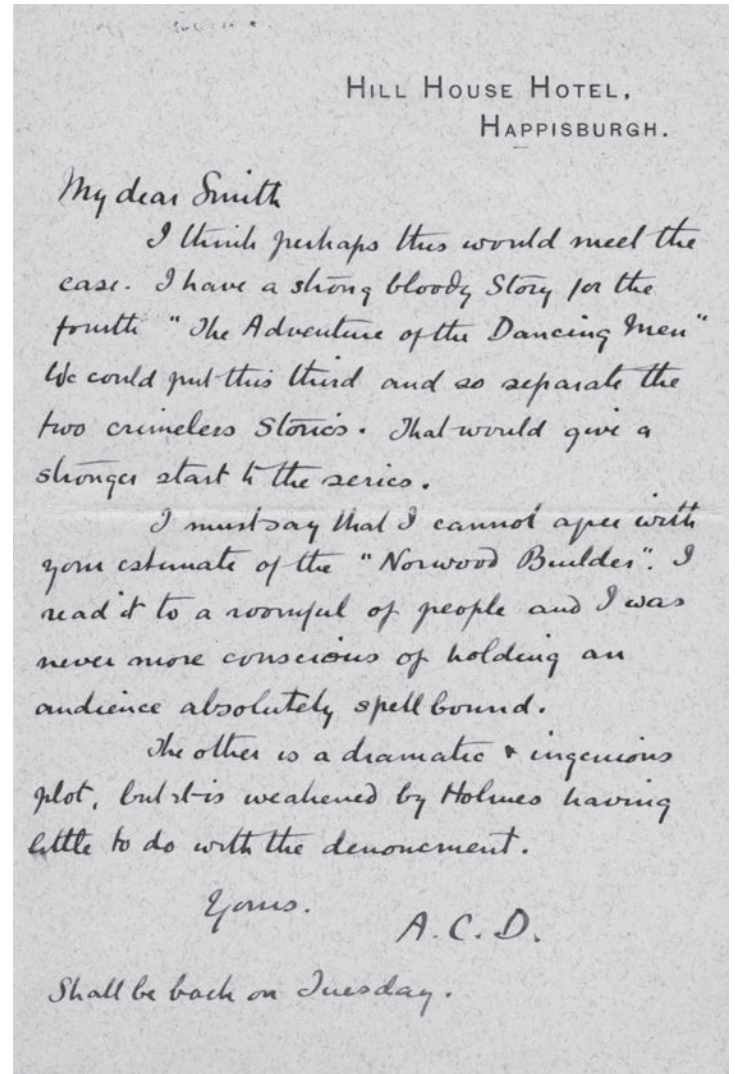 HILL HOUSE HOTEL,
HAPPISBURGH.
My dear Smith
I think perhaps this would meet the
case. I have a strong bloody Story for the
fourth "The Adventure of the Dancing Men"
We could put this third and so separate the
two crimeless Stories. That would give a
stronger start to the series.
I must say that I cannot agree with
your estimate of the "Norwood Builder". I
read it to a roomful of people and I was
never more conscious of holding an
audience absolutely spell bound.
The other is a dramatic & ingenious
plot, but it is weakened by Holmes having
little to do with the denoument.
Yours.
A.C.D.
Shall be back on Tuesday.